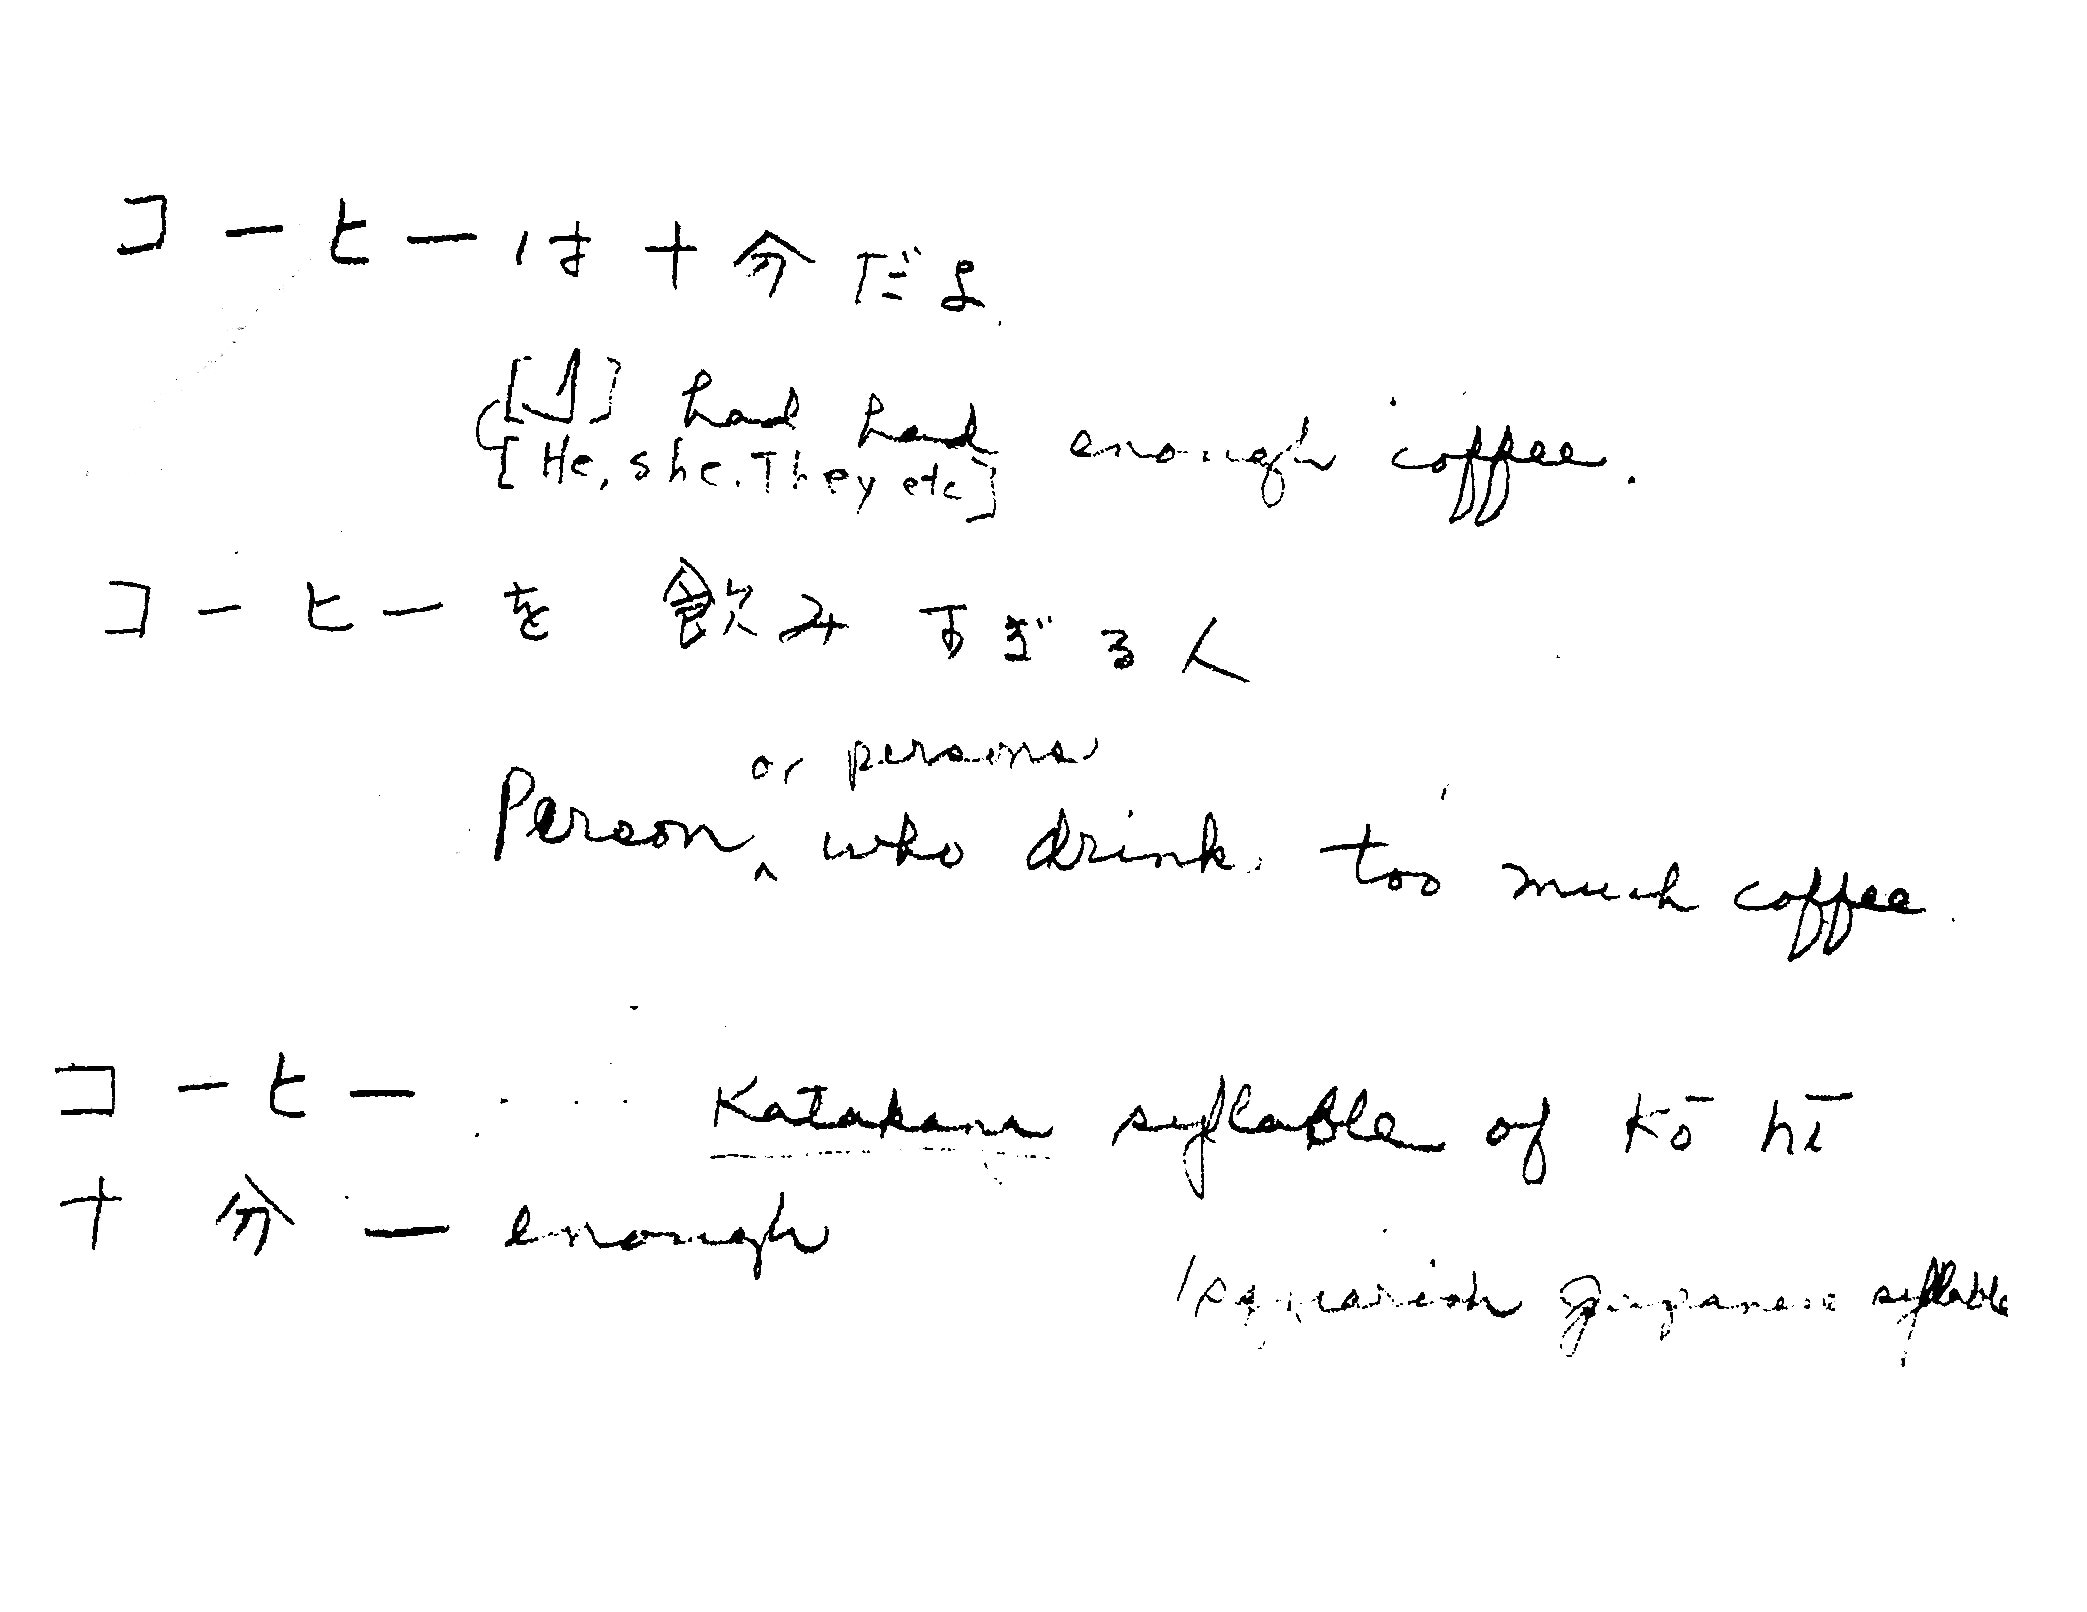 コーヒーは十分だよ
[I] had had enough coffee.
[He, she, They etc]
コーヒーを 飲みすぎる人
or persons
Person ^ who drink too much coffee.
コーヒー .... Katakana syllable of Kō hī
十分 — enough
squarish Japanese syllable